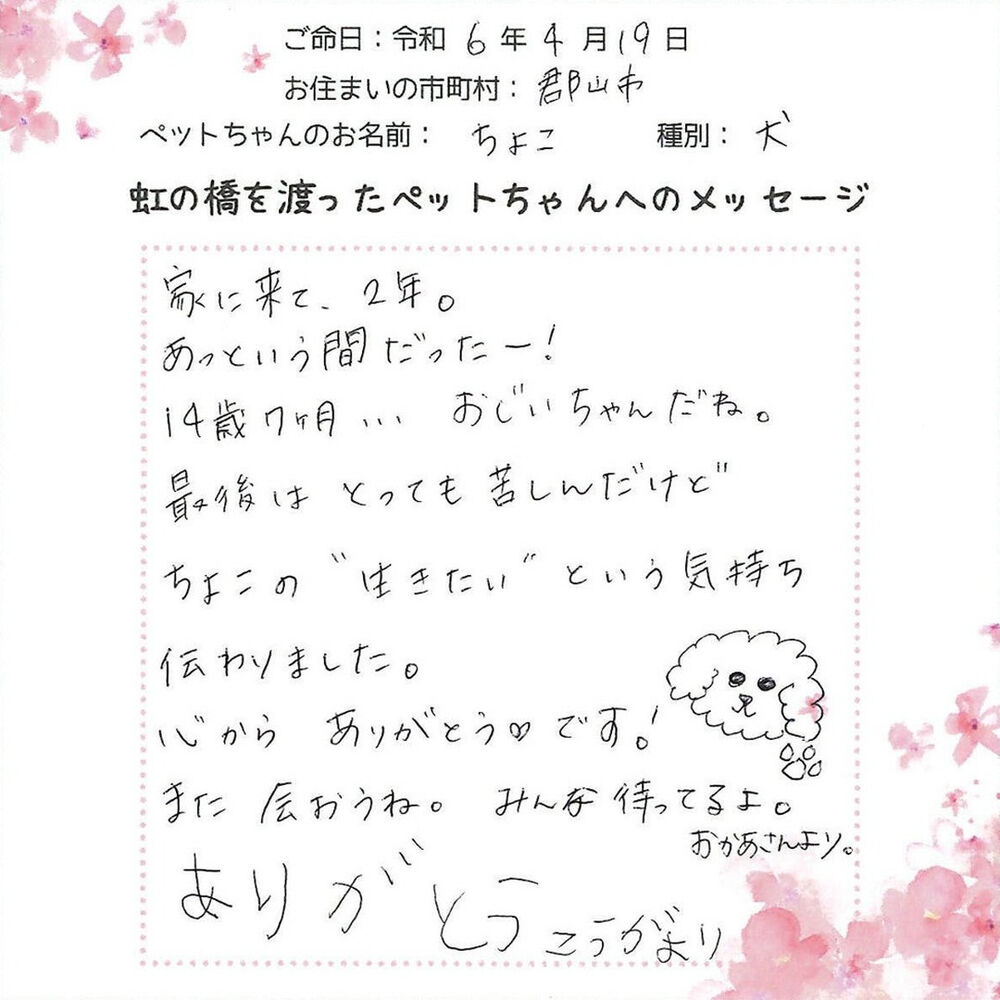 ご命日：令和 6 年 4 月 19 日
お住まいの市町村： 郡山市
ペットちゃんのお名前： ちょこ 種別： 犬
虹の橋を渡ったペットちゃんへのメッセージ
家に来て、2年。
あっという間だったー!
14歳7ヶ月... おじいちゃんだね。
最後は とっても 苦しんだけど
ちょこの "生きたい" という 気持ち
伝わりました。
心から ありがとう♡です!
また 会おうね。 みんな 待ってるよ。
おかあさんより。
ありがとう こうがより